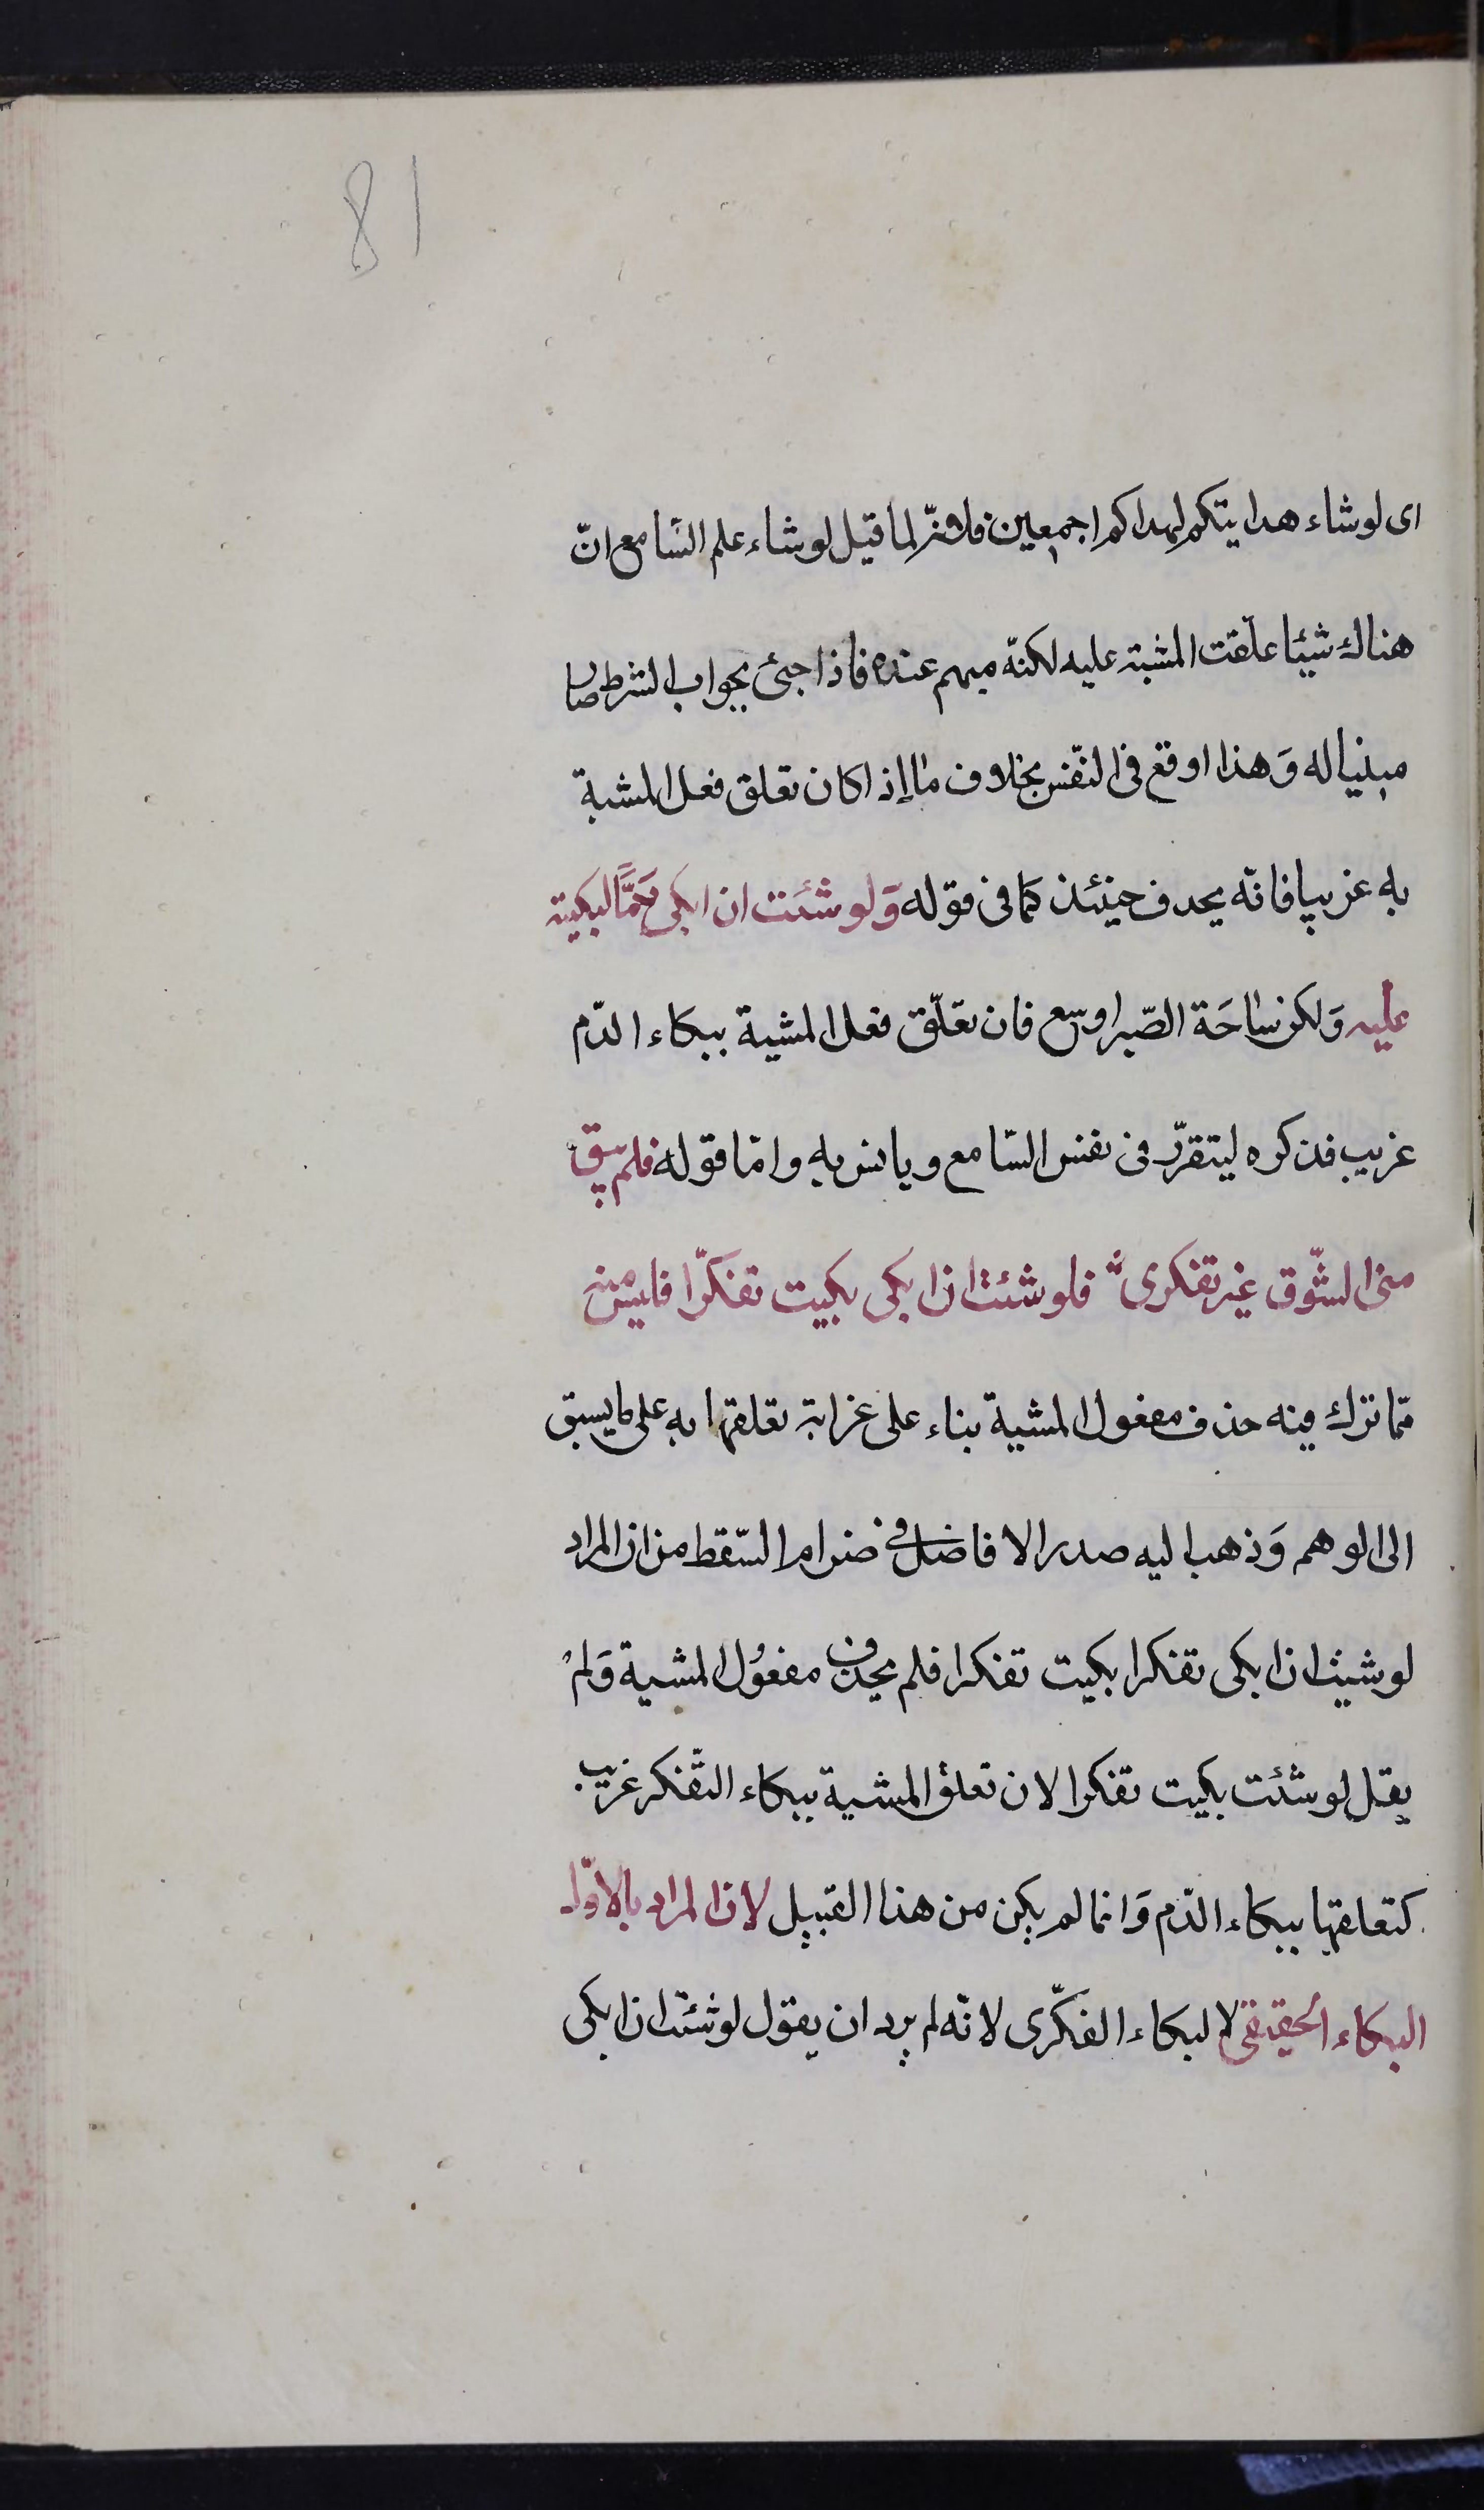 81
اى لوشاء هدايتكم لهداكم اجمعين فانه لما قيل لوشاء علم السّامع انّ
هناك شيئا علّقت المشية عليه لكنّه مبهم عنده فاذا جيئ بجواب الشرط صار
مبنيا له وَهذا اوقع فى النّفس بخلاف ما إذا كان تعلق فعل المشية
به غريبا فانّه يحذف حينئذ كما فى قوله وَلو شئت ان ابكى دَمًا لبكيته
عليه وَلكن ساحَة الصّبر اوسع فان تعلّق فعل المشية ببكاء الدّم
غريب فذكره ليتقرّر فى نفس السّامع ويانس به وامّا قوله فلم يبق
منى الشّوق غير تفكرى فلو شئت ان ابكى بكيت تفكرّا فليس منه
ممّا ترك فيه حذف مفعول المشية بناء على غرابة تعلقها به على ما يسبق
الى الوهم وَذهب اليه صدر الافاضل فى ضرام السّقط من ان المراد
لو شيت ان ابكى تفكرا بكيت تفكرا فلم يحذف مفعُول المشية وَلم
يقل لو شئت بكيت تفكرا لان تعلق المشية ببكاء التّفكر غريب
كتعلقها ببكاء الدّم وَانما لم يكن من هذا القبيل لان المراد بالاوّل
البكاء الحقيقى لا البكاء الفكّرى لانّه لم يرد ان يقول لو شئت ان ابكى